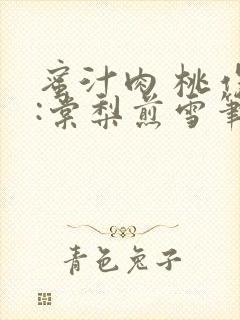 蜜汁肉桃
:棠梨煎雪筆
青色兔子